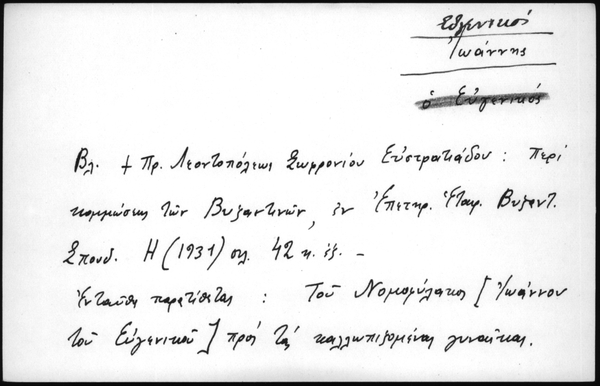 Εὐγενικός
Ἰωάννης
ὁ Εὐγενικός
Βλ. + Πρ. Λεοντοπόλεως Σωφρονίου Εὐστρατιάδου : Περί
κομμώσεως τῶν Βυζαντινῶν, ἐν Ἐπετηρ. Ἑταιρ. Βυζαντ.
Σπουδ. Η (1931) σελ. 42 κ. ἑξ. –
Ἐνταῦθα παρατίθεται : Τοῦ Νομοφύλακος [Ἰωάννου
τοῦ Εὐγενικοῦ] πρός τάς καλλωπιζομένας γυναῖκας.